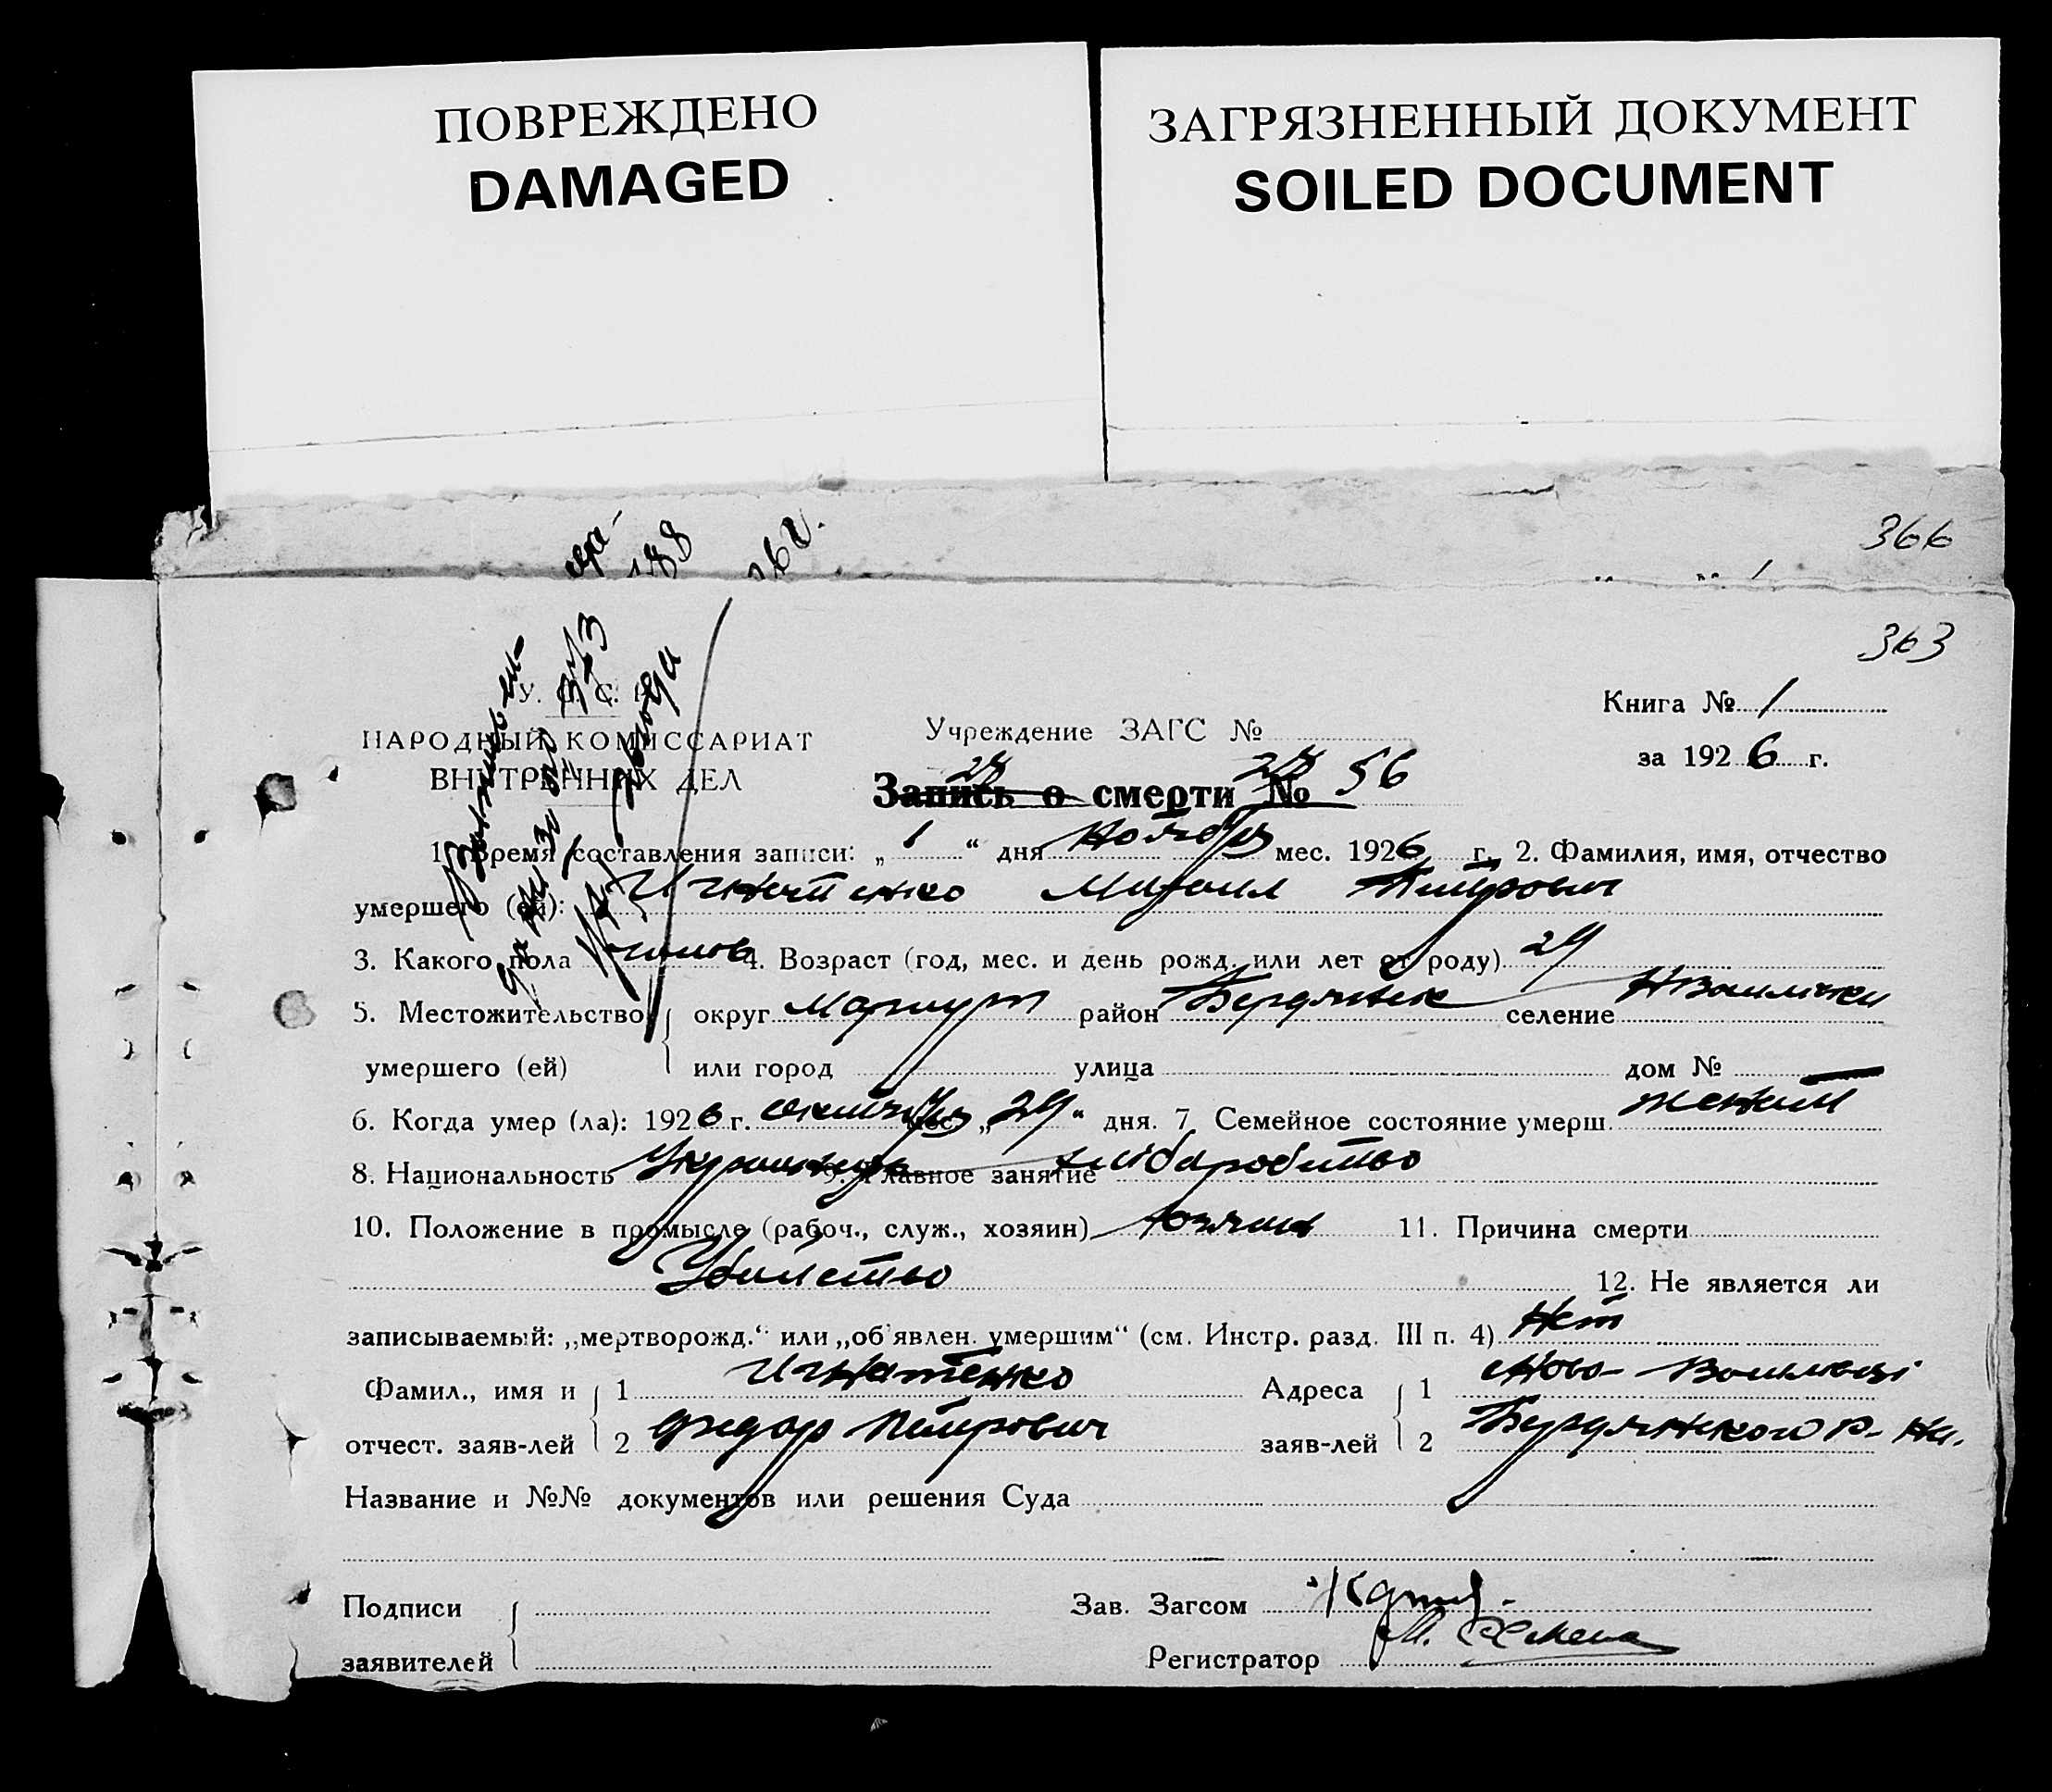 ПОВРЕЖДЕНО
DAMAGED
ЗАГРЯЗНЕННЫЙ ДОКУМЕНТ
SOILED DOCUMENT
366
363
У. С. С.
НАРОДНЫЙ КОМИССАРИАТ
ВНУТРЕННИХ ДЕЛ
Учреждение ЗАГС №
Книга № 1
за 1926 г.
Запись о смерти № 56
1. Время составления записи: „1“ дня Ноября мес. 1926 г. 2. Фамилия, имя, отчество
умершего (ей): Игнатенко Михаил Петрович
3. Какого пола 4. Возраст (год, мес. и день рожд. или лет от роду) 29
5. Местожительство округ Мариуп район Бердянск селение
умершего (ей) или город улица дом №
6. Когда умер (ла): 1926 г. октября мес. „29“ дня. 7 Семейное состояние умерш. женат
8. Национальность 9. Главное занятие
10. Положение в промысле (рабоч., служ., хозяин) хозяин 11. Причина смерти
Убийство 12. Не является ли
записываемый: „мертворожд.“ или „об'явлен. умершим“ (см. Инстр. разд. III п. 4) Нет
Фамил., имя и 1 Игнатенко Адреса 1 Ново-
отчест. заяв-лей 2 Федор Петрович заяв-лей 2 Бердянского р-на.
Название и №№ документов или решения Суда
Подписи Зав. Загсом
заявителей Регистратор